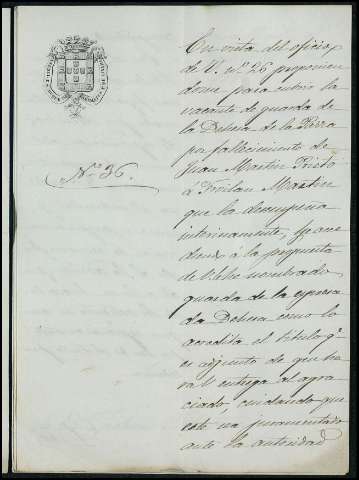 Nº 36.
En vista del oficio
de V. nº 26 proponien
dome para cubrir la
vacante de guarda de
la Dehesa de la
por fallecimiento de
Juan Martin Prieto
á Froilan Martin
que la desempeña
interinamente, he
á la propuesta
de nombrado
guarda de la expresa
da Dehesa como lo
acredita el titulo q.e
es adjunto de que ha
rá V. entrega al agra
ciado, cuidando que
este sea juramentado
ante la autoridad